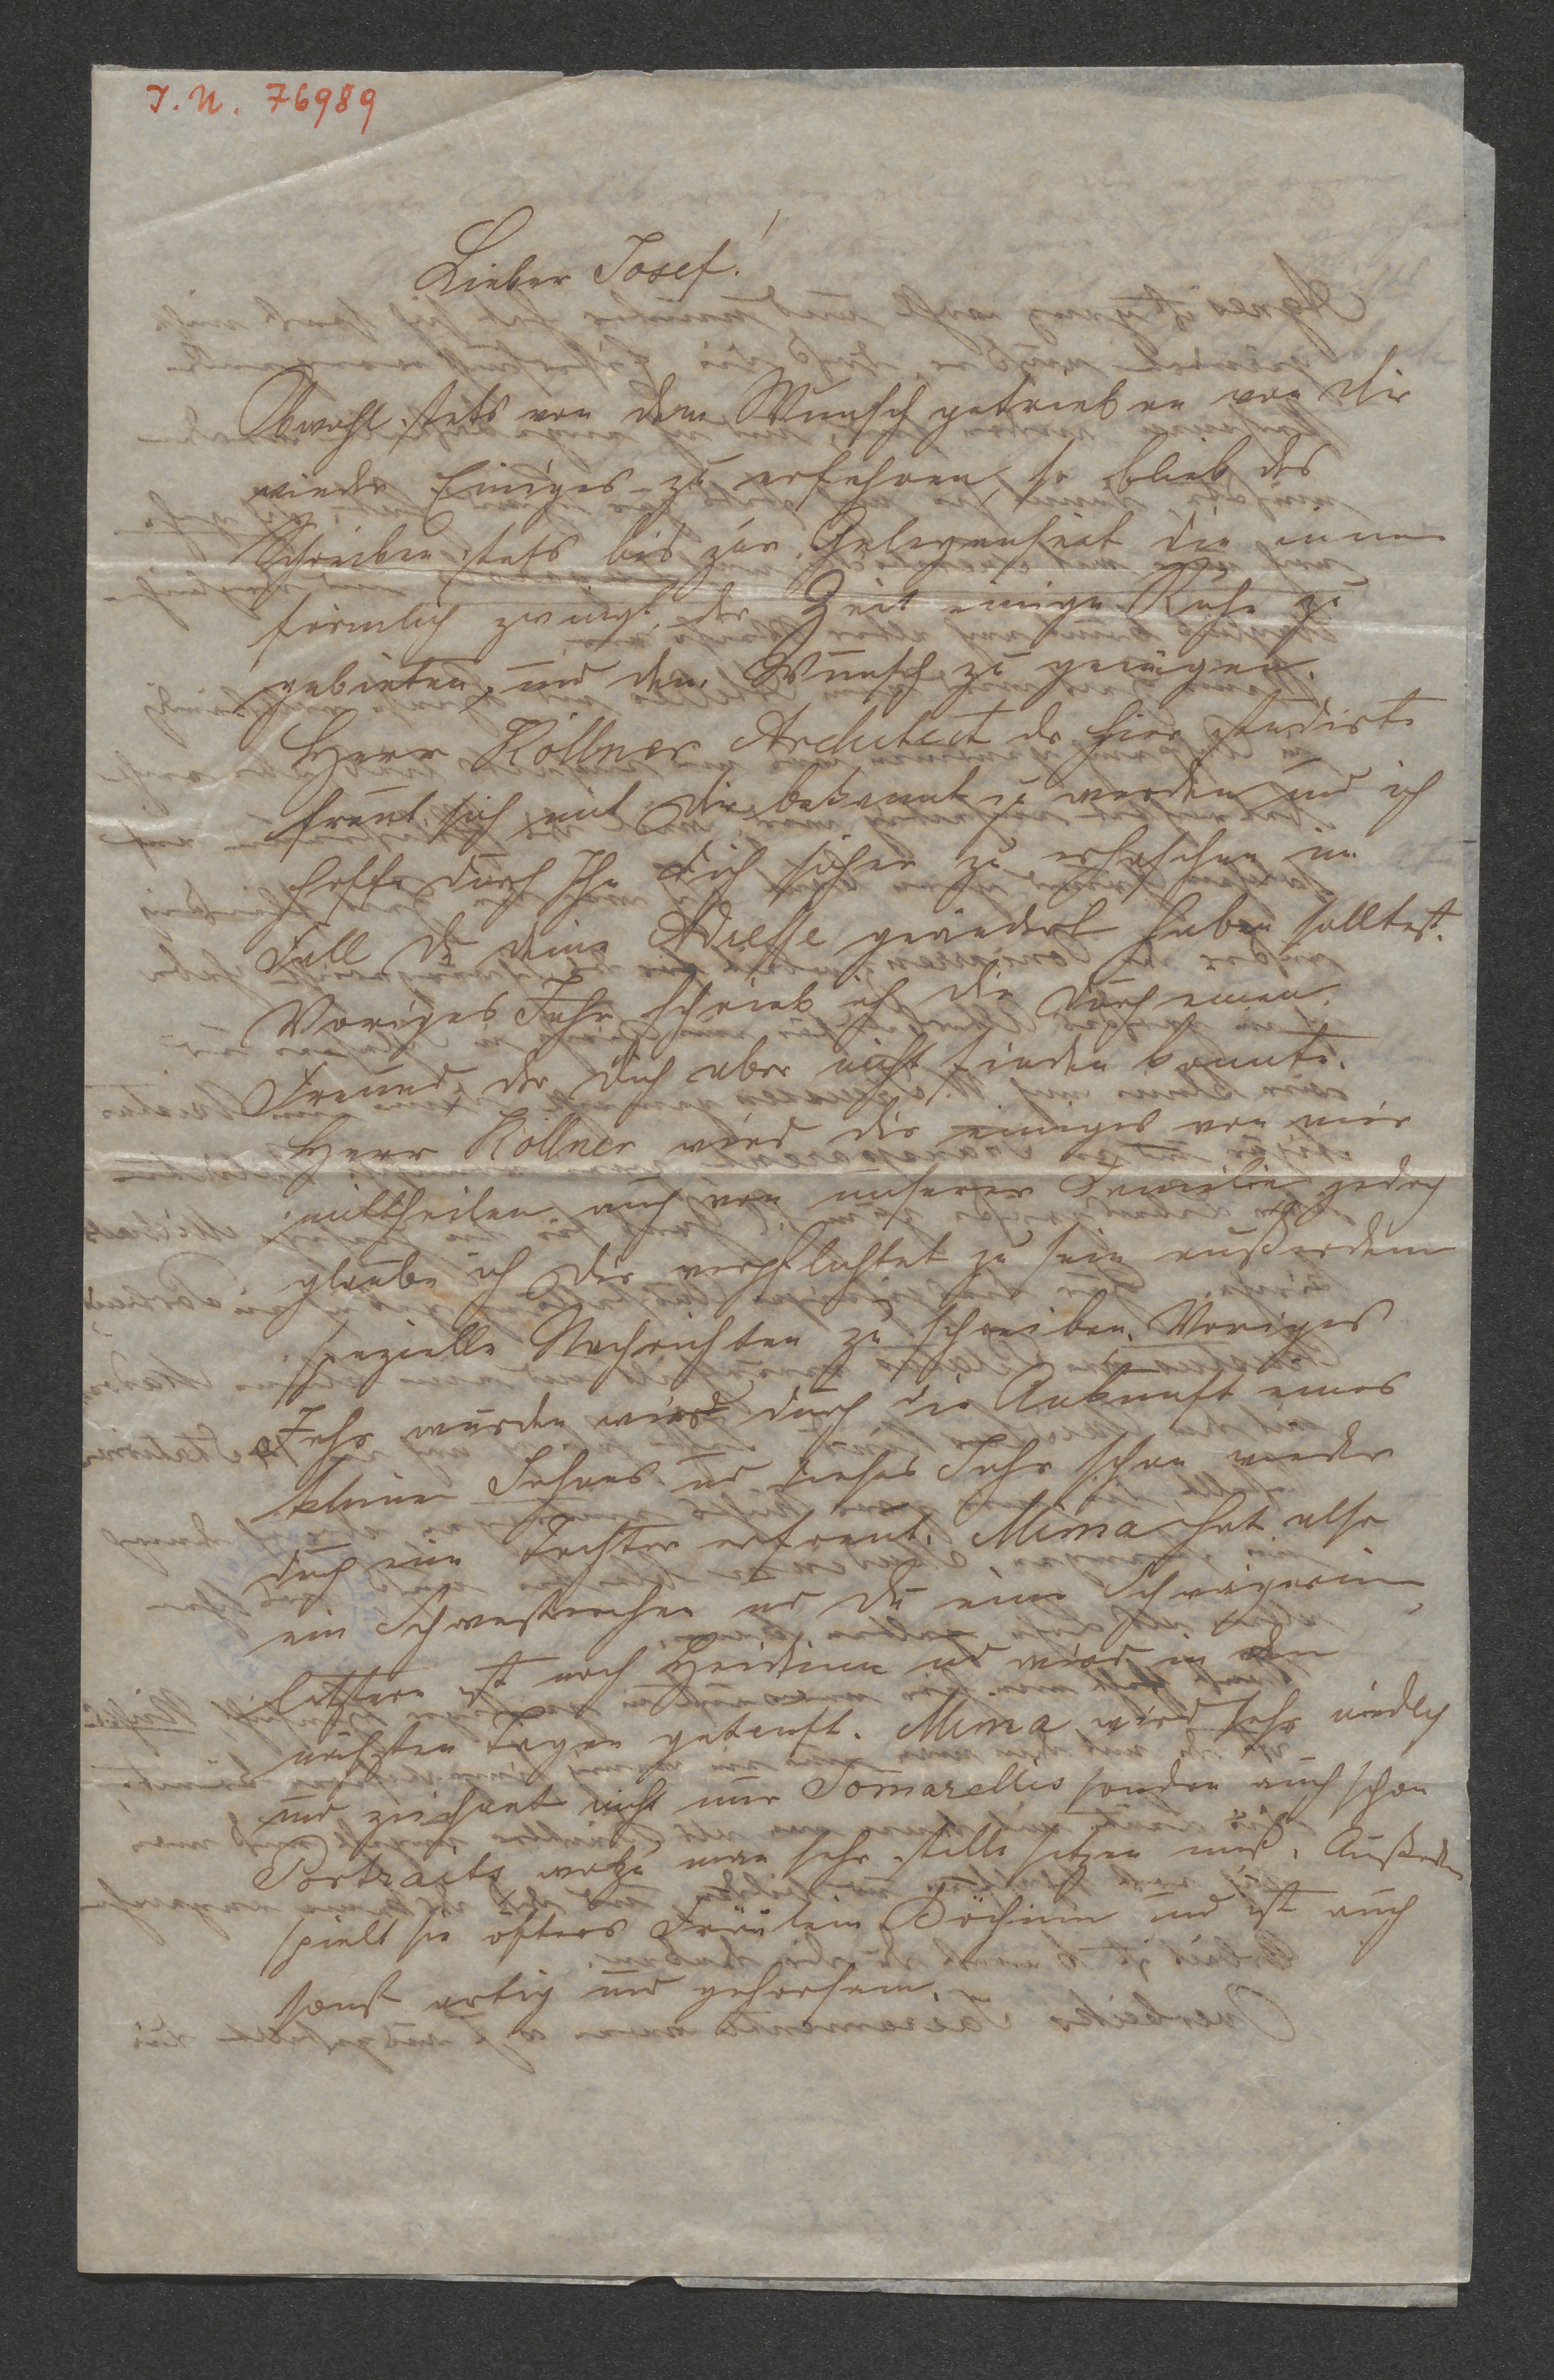 I. N. 76989
Lieber Josef!
Obwohl stets von dem Wunsch getrieben von dir
wieder Einiges zu erfahren, so blieb das
Schreiben stets bis zur Gelegenheit die einen
förmlich zwingt, der Zeit einige Ruhe zu
gebieten, und dem Wunsch zu genügen.
Herr Köllner Architect der hier studirte
freut sich mit dir bekannt zu werden und ich
hoffe durch Ihn dich sicher zu erhaschen im
Fall du deine Adresse geändert haben solltest.
Voriges Jahr schrieb ich dir durch einen
Freund der dich aber nicht finden konnte.
Herr Köllner wird dir einiges von mir
mittheilen auch von unserer Familie jedoch
glaube ich dir verpflichtet zu sein außerdem
spezielle Nachrichten zu schreiben. Voriges
Jahr wurden wir durch die Ankunft eines
kleinen Sohnes und dieses Jahr schon wieder
durch eine Tochter erfreut. Mima hat also
ein Schwesterchen und du eine Schwägerin,
letztere ist noch Heidinn und wird in den
nächsten Tagen getauft. Mima wird sehr niedlich
und zeichnet nicht nur Tomarellis sondern auch schon
Portraits wozu man sehr stille sitzen muß. Außerdem
spielt sie öfters Fräulein Köchinn und ist auch
sonst artig und gehorsam.